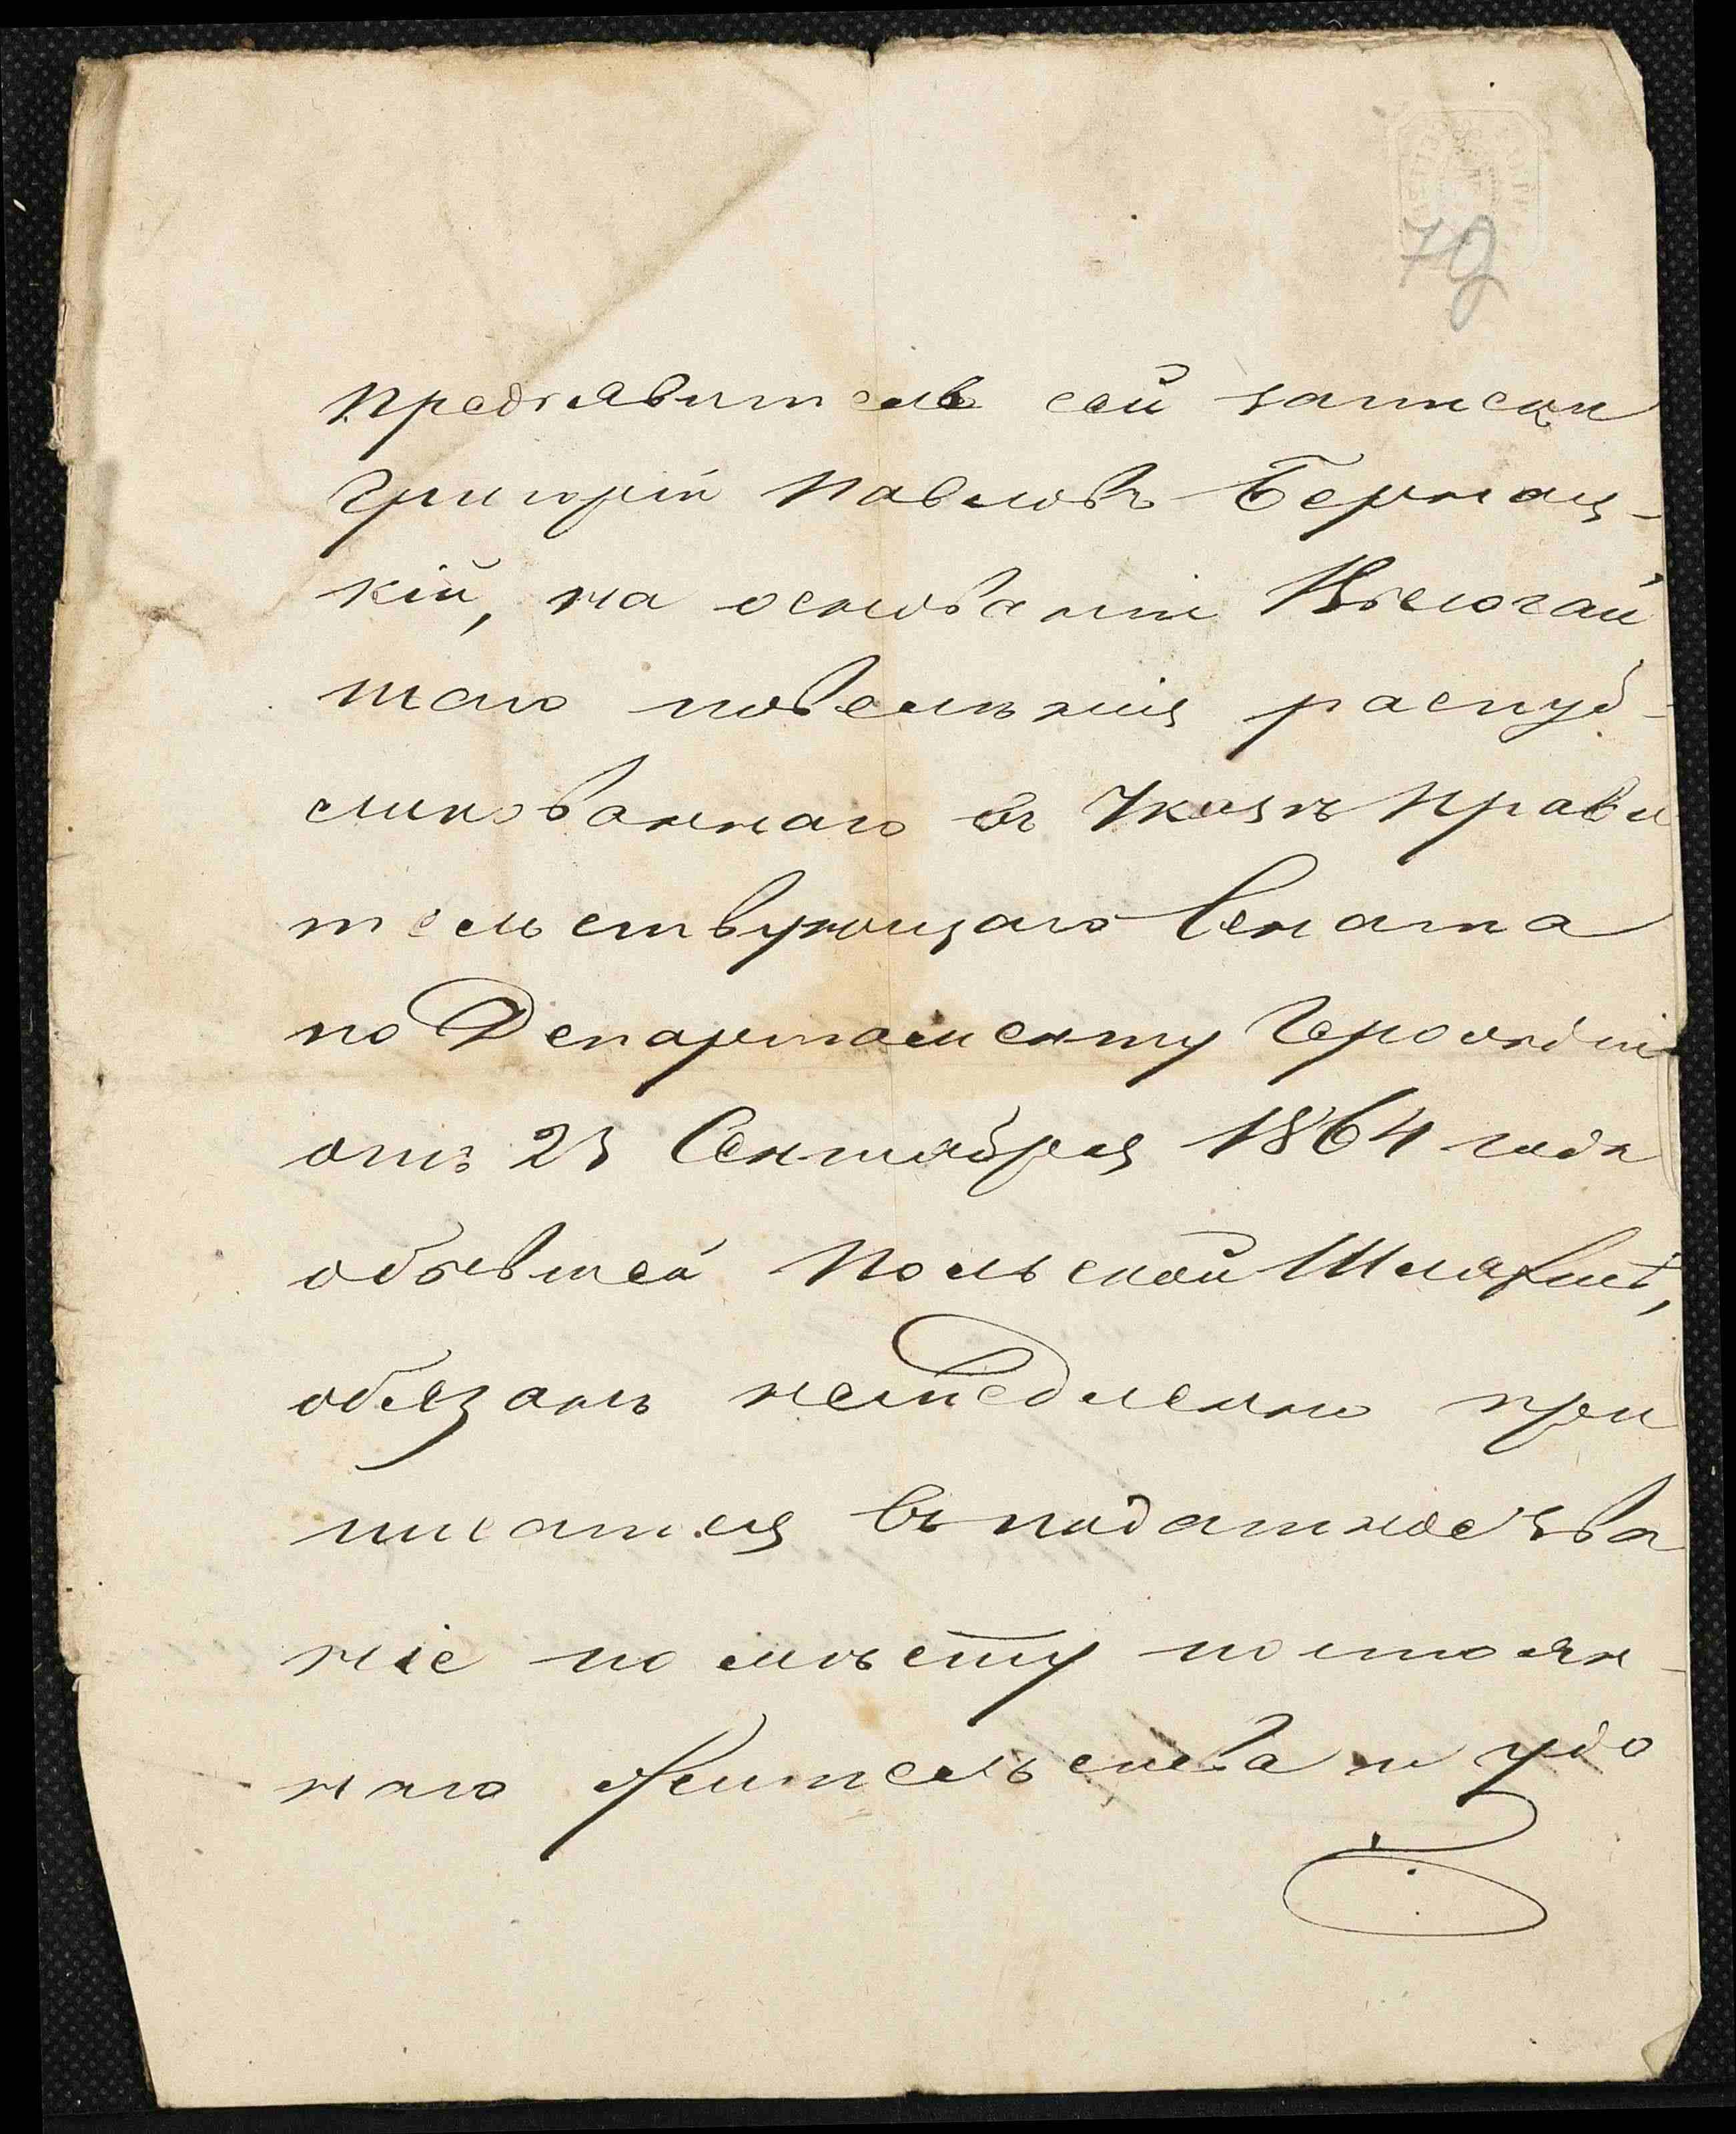 70
предъявитель сей записки
Григорій Павловъ Бернац-
кій, на основаніи Высочай
шаго повелѣнія распуб-
ликованнаго въ Указѣ Прави
тельствующаго Сената
по Департаменту Герольдіи
отъ 23 Сентября 1864 года
обывшей Польской Шляхтѣ,
обязанъ немедленно при
писатся въ податное зва
ніе по мѣсту постоян-
наго Жительства и удо